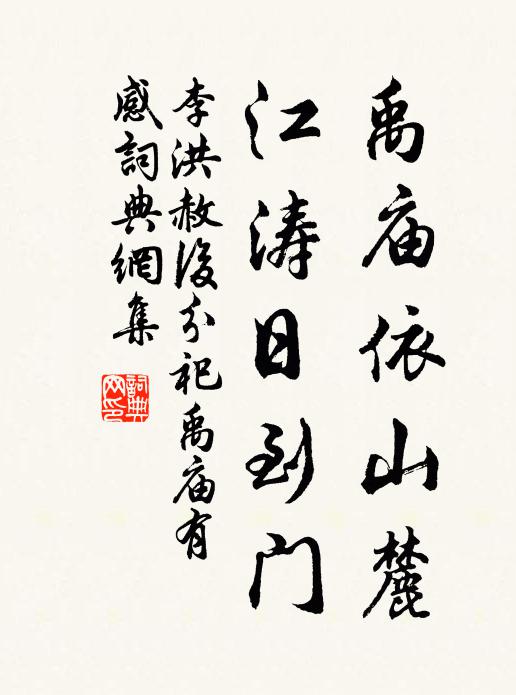 禹庙依山麓
江涛日到门
李洪赦後分祀禹庙有
感詞典網集
詞典
网印